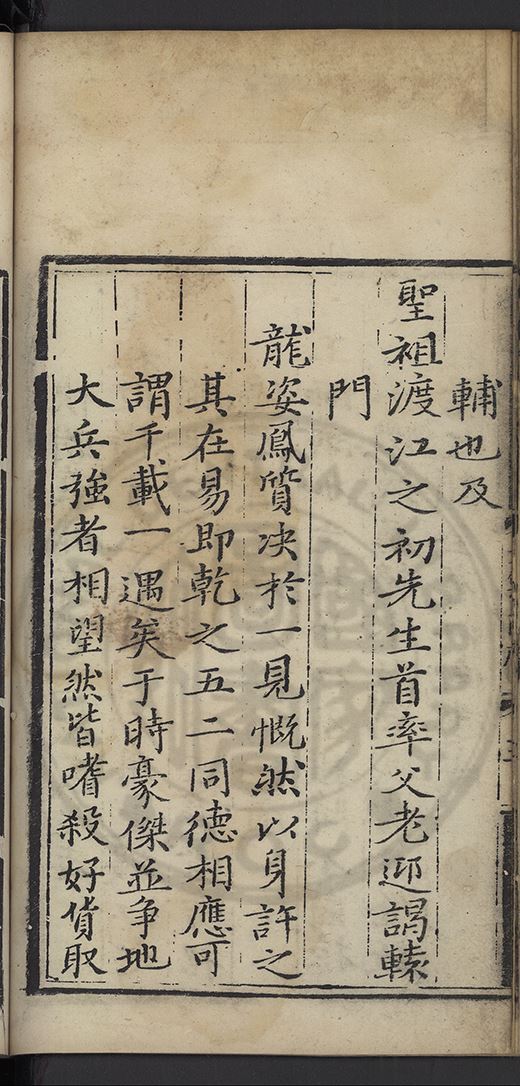 輔也及
聖祖渡江之初先生首率父老迎謁轅
門
龍姿鳳質决於一見慨然以身許之
其在易即乾之五二同德相應可
謂千載一遇矣于時豪傑並争地
大兵強者相望然皆嗜殺好貨取